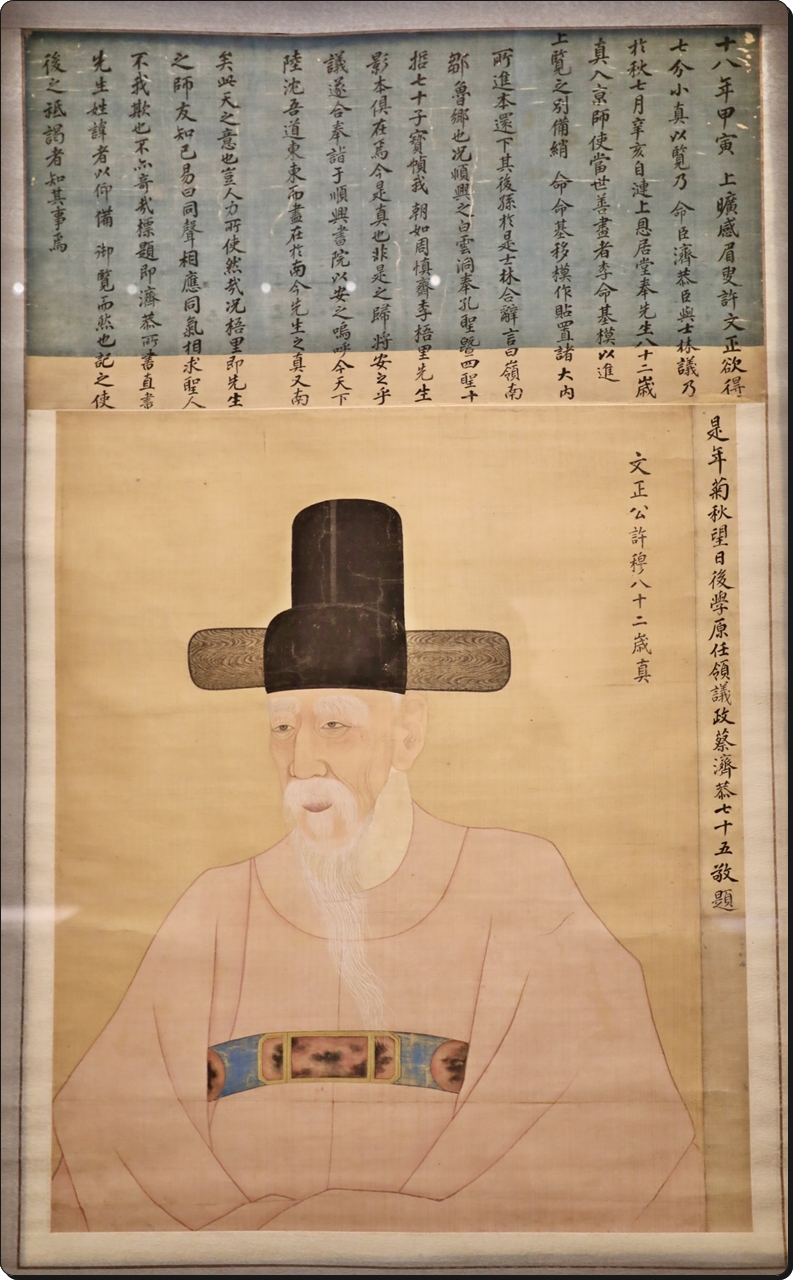 十八年甲寅 上曠感眉叟許文正欲得
七分小真以覽乃 命臣濟恭臣與士林議乃
於秋七月辛亥自漣上恩居堂奉先生八十二歲
真入京師使當世善畫者李命基模以進
上覽之別備綃 命命基移模作貼置諸大內
所進本還下其後孫於是士林合辭言曰嶺南
鄒魯鄉也況順興之白雲洞奉孔聖曁四聖十
哲七十子寶幀我 朝如周愼齋李梧里先生
影本俱在焉今是真也非是之歸將安之乎
議遂合奉詣于順興書院以安之嗚呼今天下
陸沈吾道東東而盡在於南今先生之真又南
矣此天之意也豈人力所使然哉況梧里即先生
之師友知己易曰同聲相應同氣相求聖人
不我欺也不亦奇哉標題即濟恭所書直書
先生姓諱者以仰備 御覽而然也記之使
後之祗謁者知其事焉
是年菊秋望日後學原任領議政蔡濟恭七十五敬題
文正公許穆八十二歲真